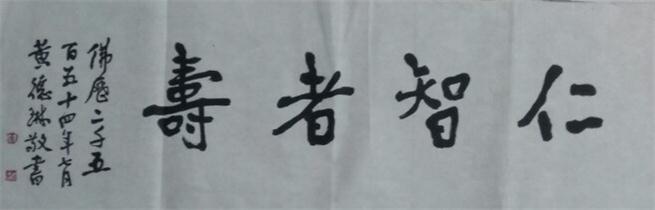 仁智者壽
佛歷二千五
百五十四年七月
黄德琳敬書